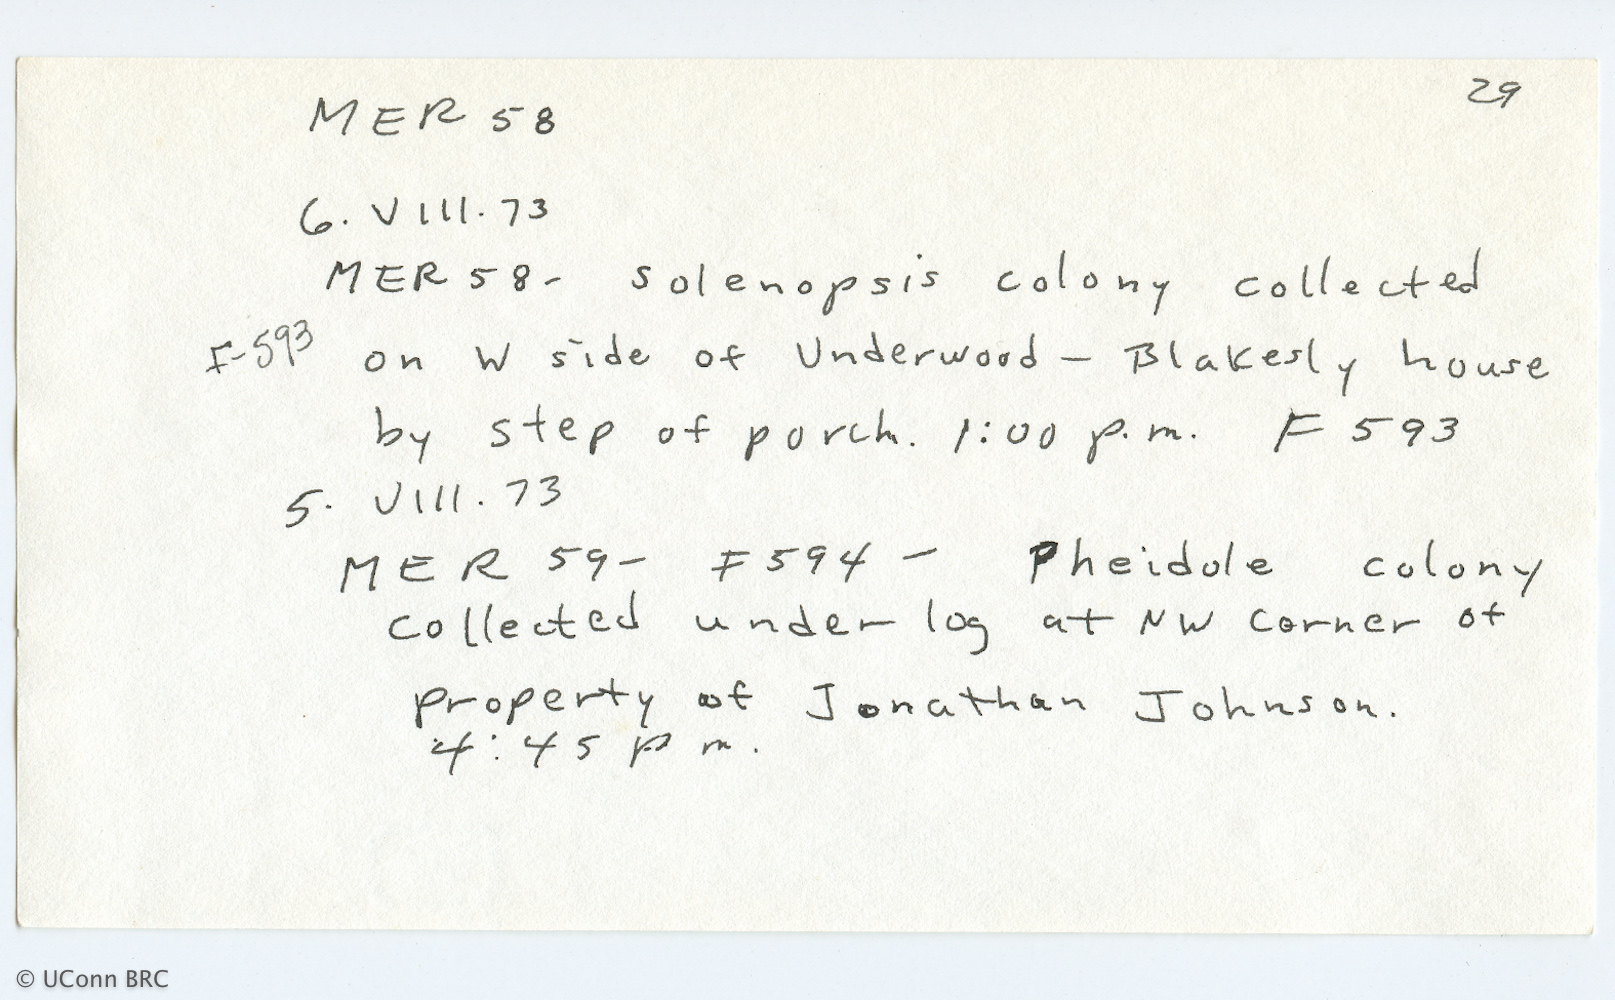 29
MER 58
6. VIII. 73
MER 58 - Solenopsis colony collected
F-593 on W side of Underwood - Blakesly house
by step of porch. 1:00 p.m. F 593
5. VIII. 73
MER 59 - F594 - Pheidole colony
collected under log at NW corner of
property of Jonathan Johnson.
4:45 p m.
© UConn BRC